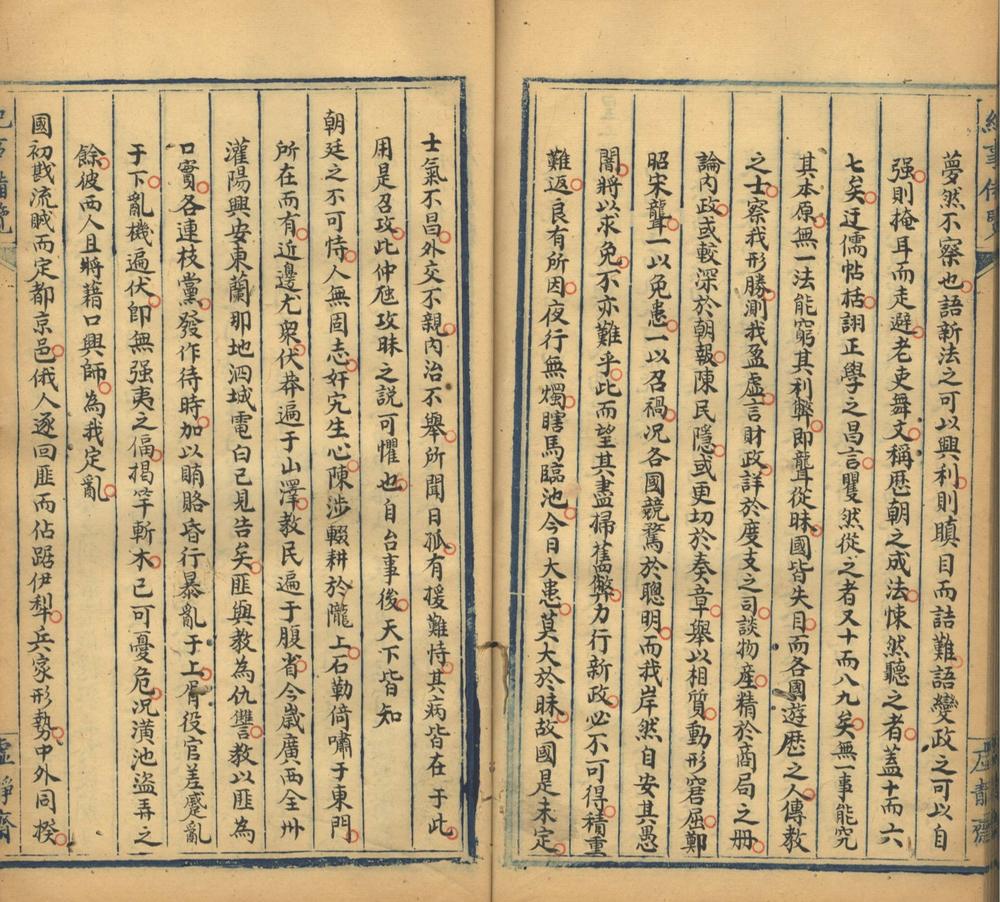 夢然不察也語新法之可以興利則瞋目而詰難語變政之可以自
强則掩耳而走避老吏舞文稱歷朝之成法悚然聽之者蓋十而六
七矣迂儒帖括詡正學之昌言矍然從之者又十而八九矣無一事能究
其本原無一法能窮其利弊即聾從昧國皆失目而各國遊歷之人傳教
之士察我形勝測我盈虛言財政詳於度支之司談物產精於商局之冊
論內政或較深於朝報陳民隱或更切於奏章舉以相質動形窘屈鄭
昭宋聾一以免患一以召禍况各國競騖於聰明而我岸然自安其愚
闇將以求免不亦難乎此而望其盡掃舊弊力行新政必不可得積重
難返良有所因夜行無燭瞎馬臨池今日大患莫大於昧故國是未定
士氣不昌外交不親內治不舉所聞日孤有援難恃其病皆在于此
用是召攻此仲虺攻昧之説可懼也自台事後天下皆知
朝廷之不可恃人無固志奸宄生心陳涉輟耕於隴上石勒倚嘯于東門
所在而有近邊尤衆伏莽遍于山澤教民遍于腹省今歲廣西全州
灌陽興安東蘭那地泗城電白已見告矣匪與教為仇讐教以匪為
口實各連枝黨發作待時加以賄賂昏行暴亂于上胥役官差蹙亂
于下亂機遍伏即無强夷之偪揭竿斬木已可憂危况潢池盜弄之
餘彼西人且將藉口興師為我定亂
國初戡流賊而定都京邑俄人逐回匪而佔踞伊犁兵家形勢中外同揆
虛靜齋